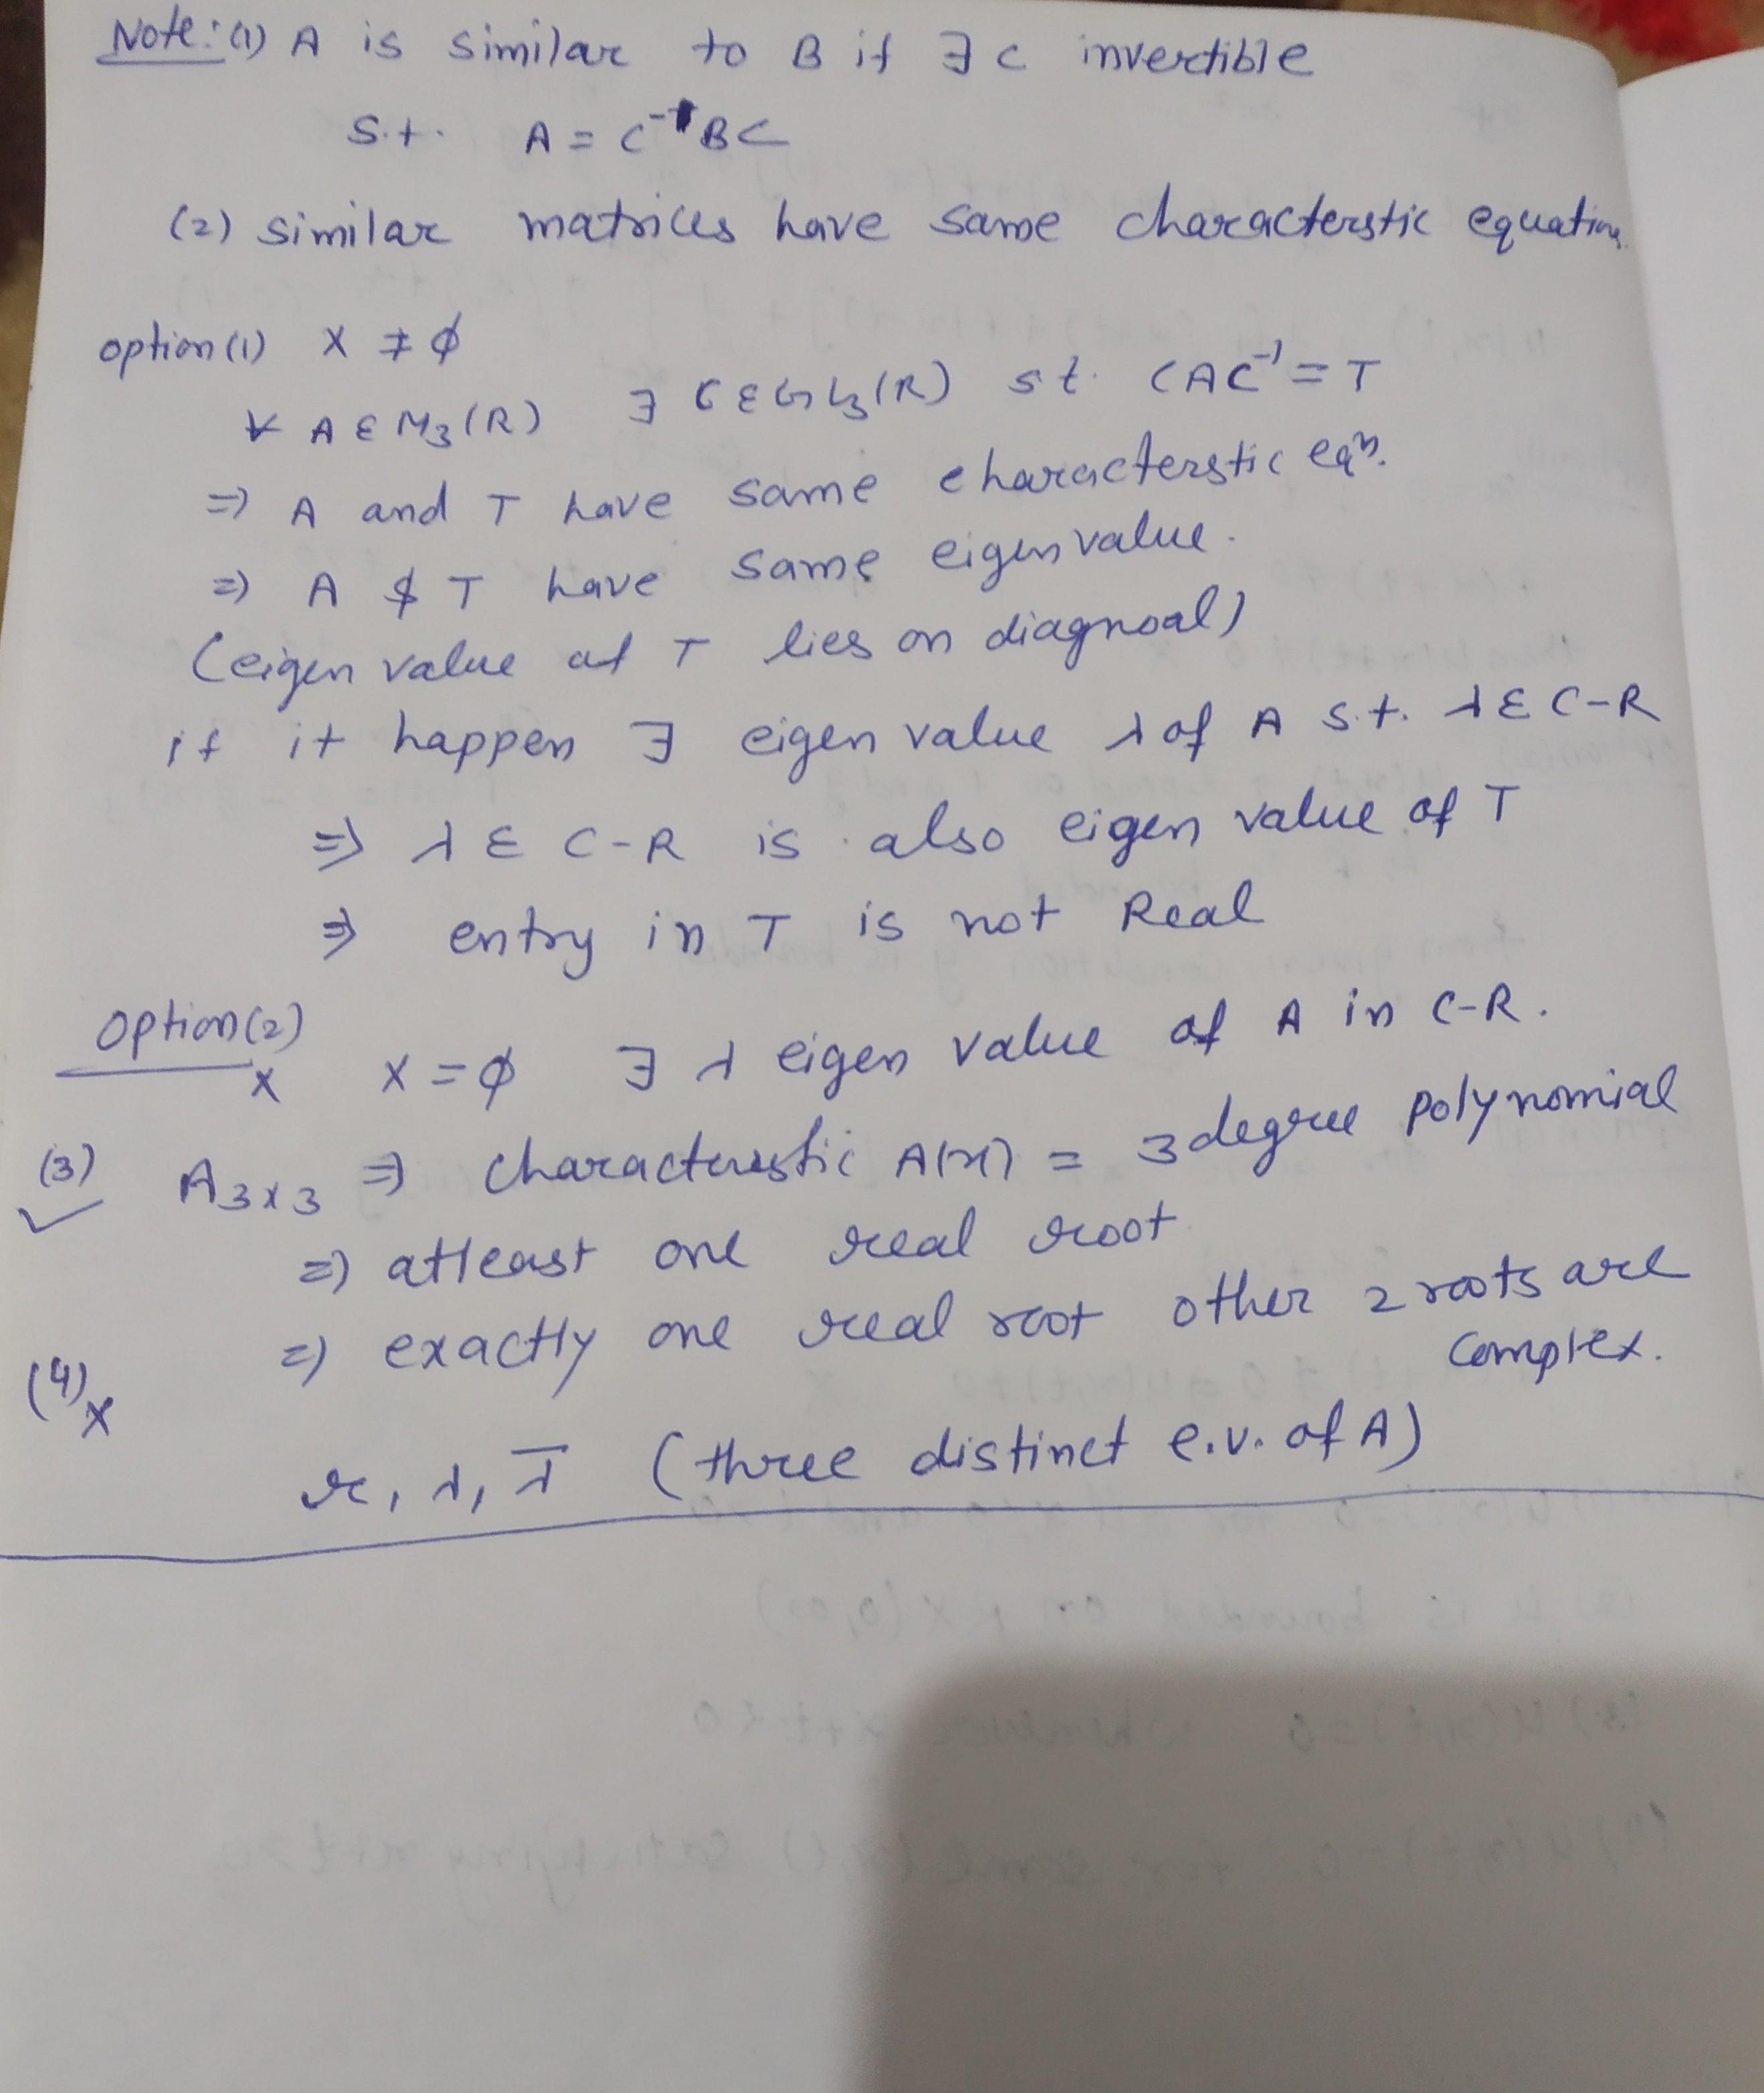 Note: (1) A is similar to B if ∃ C invertible
S.t. A = C⁻¹BC
(2) similar matrices have same characterstic equation
option (1) X ≠ ϕ
∀ A ∈ M₃(R) ∃ C ∈ GL₃(R) s.t. CAC⁻¹ = T
⇒ A and T have same characterstic eqⁿ.
⇒ A & T have same eigen value.
(eigen value of T lies on diagnoal)
if it happen ∃ eigen value λ of A s.t. λ ∈ C-R
⇒ λ ∈ C-R is also eigen value of T
⇒ entry in T is not Real
Option (2) x X = ϕ ∃ λ eigen value of A in C-R.
(3) ✓ A₃ₓ₃ ⇒ characteristic A(x) = 3 degree polynomial
⇒ atleast one real root
⇒ exactly one real root other 2 roots are
complex.
(4) x
r, λ, λ̅ (three distinct e.v. of A)